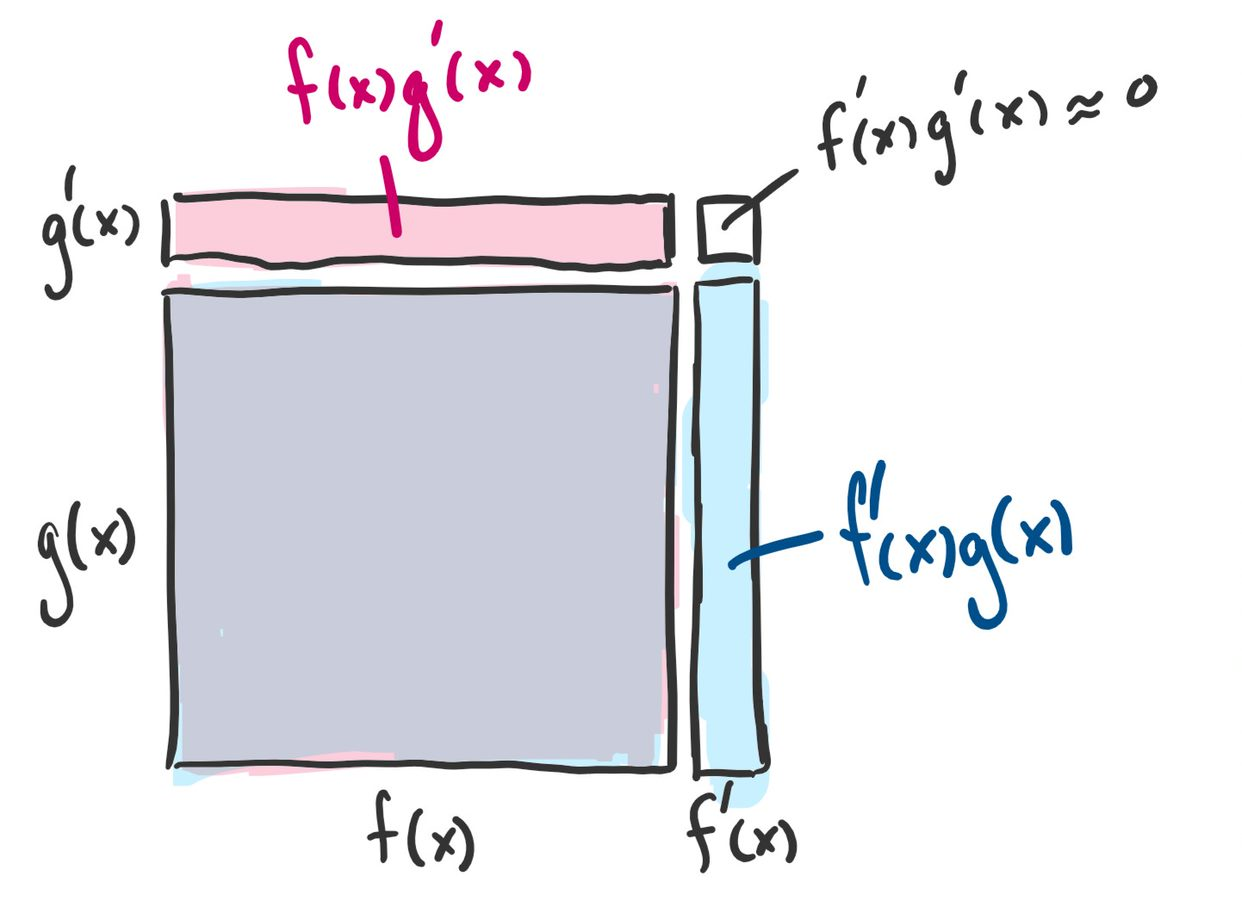 f(x)g'(x)
f'(x)g'(x) ≈ 0
g'(x)
g(x)
f'(x)g(x)
f(x)
f'(x)